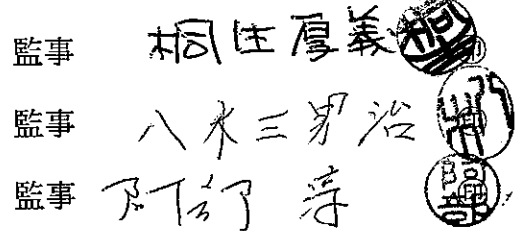 監事 桐生厚義 ㊞
監事 八木三男治 ㊞
監事 阿部 淳 ㊞